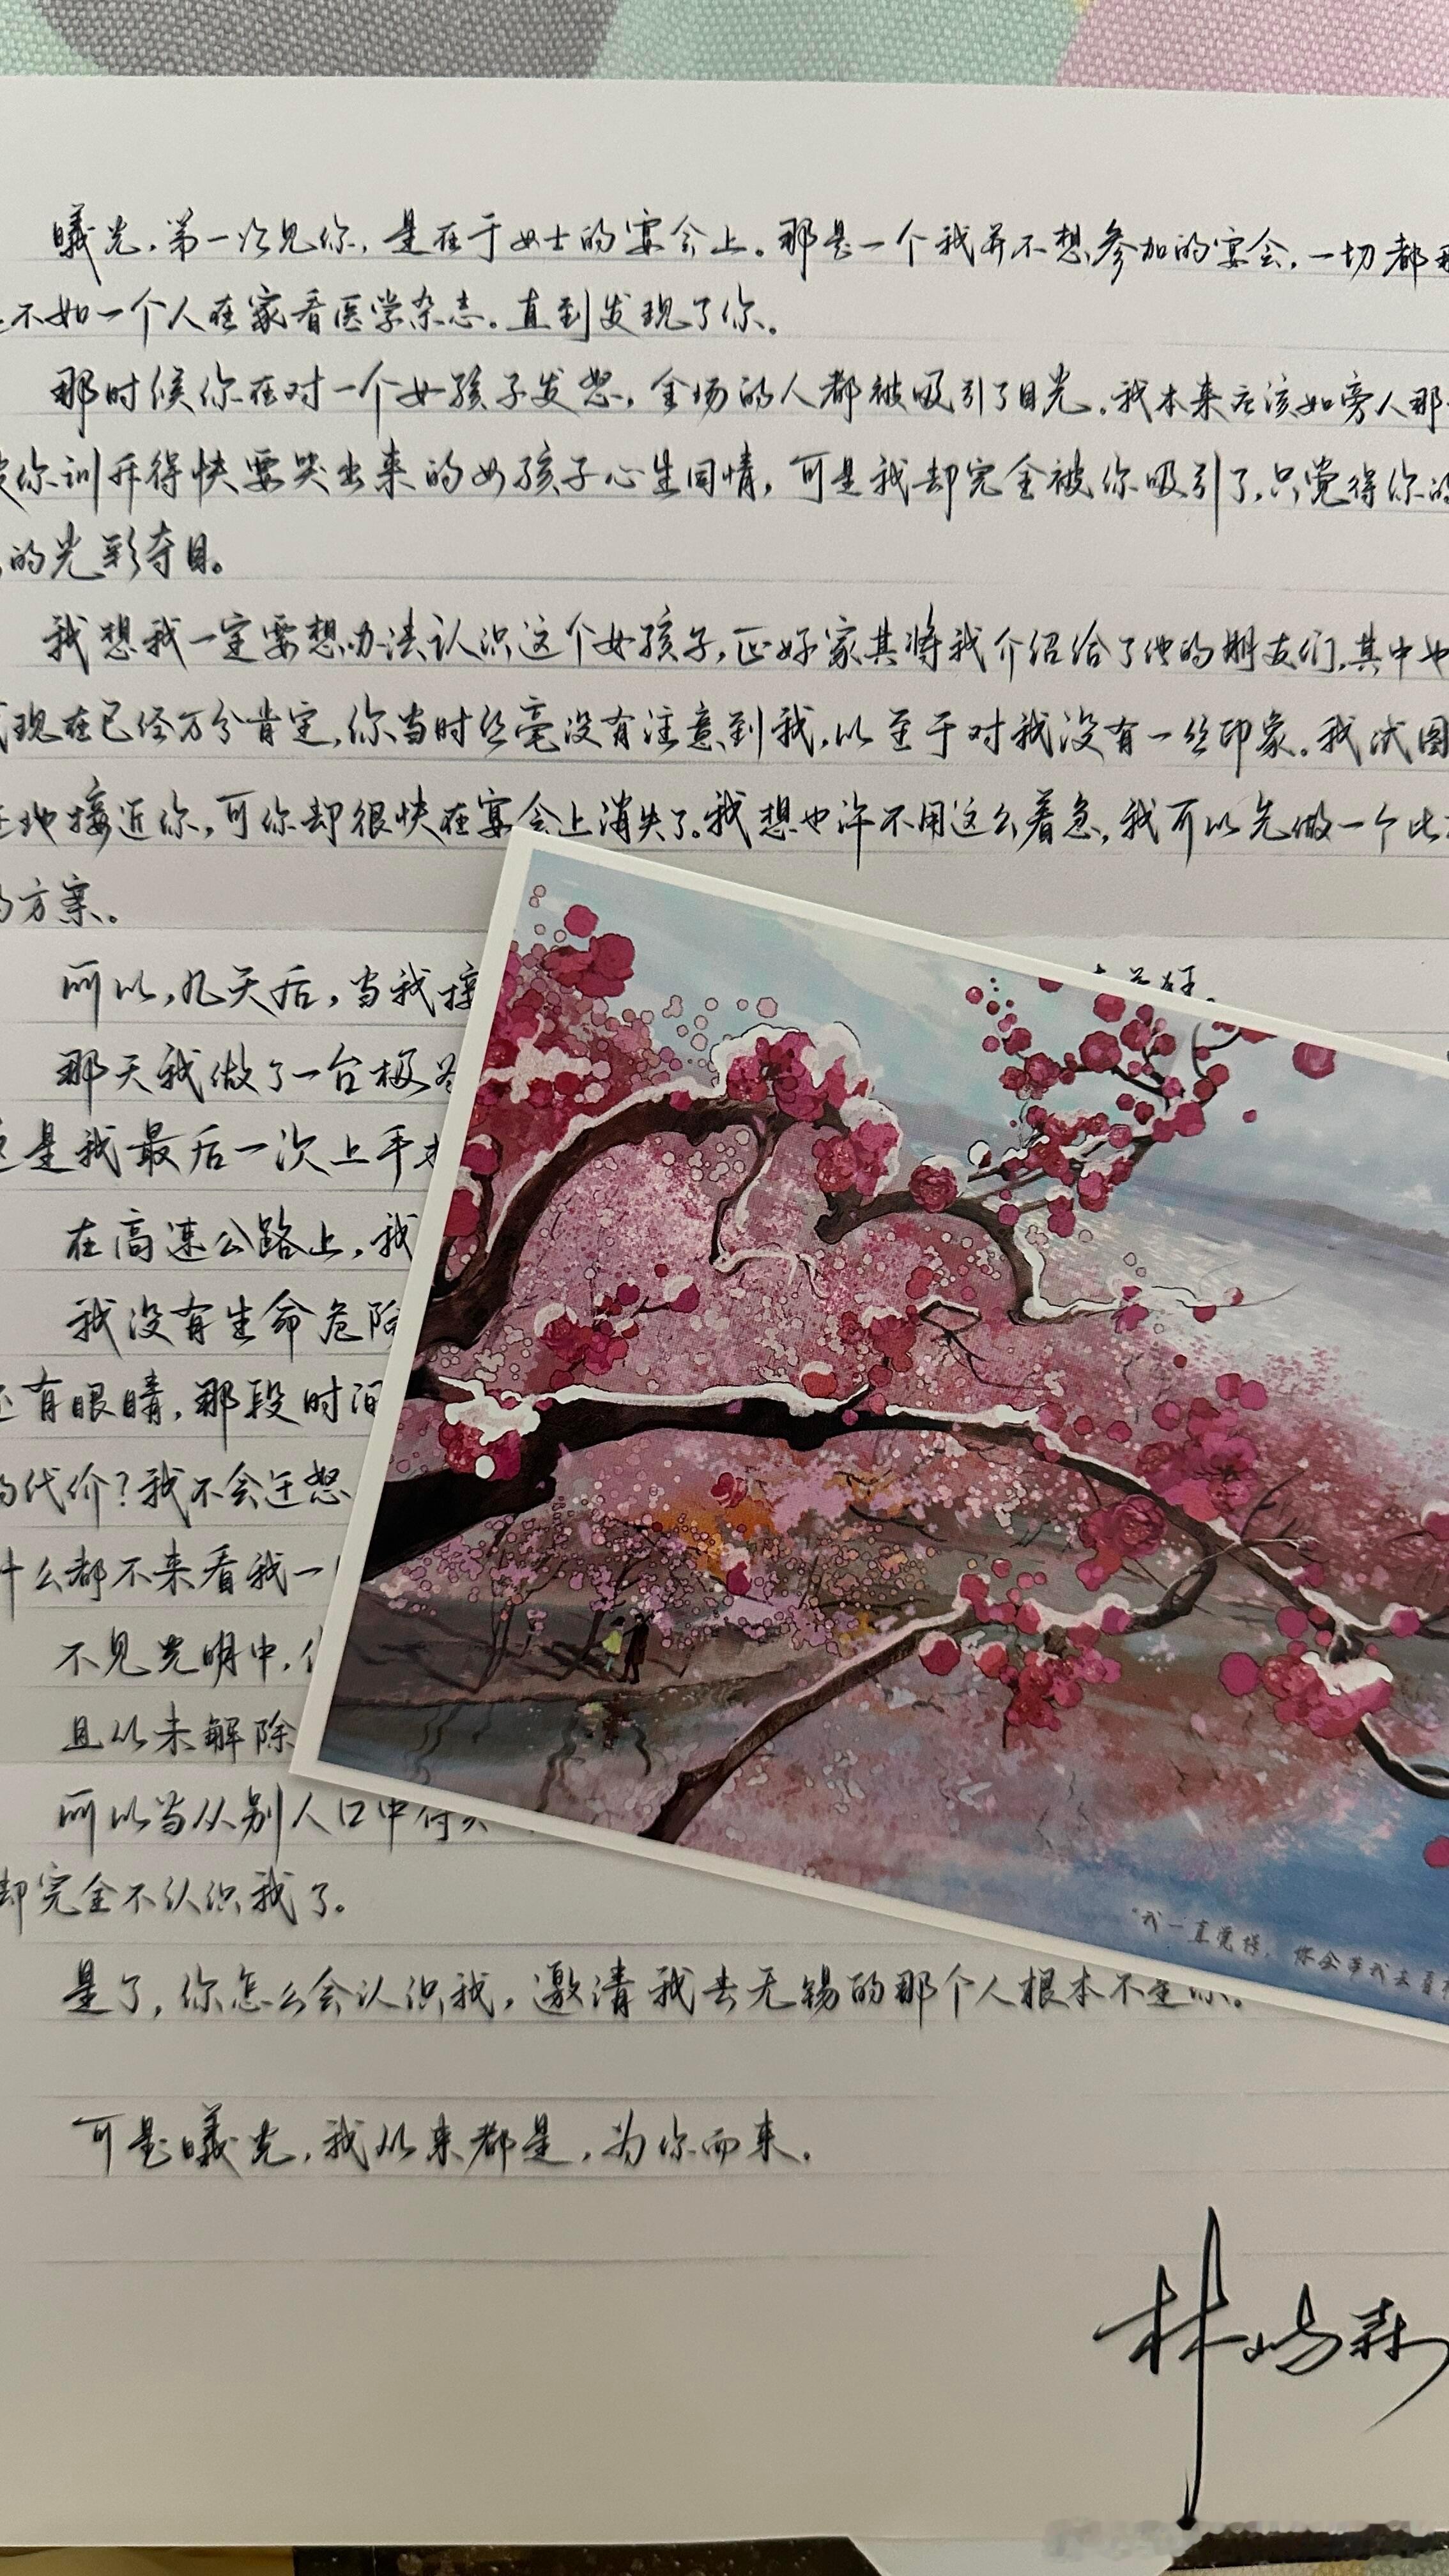 曦光,第一次见你,是在于女士的宴会上。那是一个我并不想参加的宴会,一切都
不如一个人在家看医学杂志。直到发现了你。
那时候你在对一个女孩子发怒,全场的人都被吸引了目光。我本来应该如旁人那
你训斥得快要哭出来的女孩子心生同情,可是我却完全被你吸引了,只觉得你的
的光彩夺目。
我想我一定要想办法认识这个女孩子,正好家其将我介绍给了他的朋友们,其中也
现在已经万分肯定,你当时丝毫没有注意到我,以至于对我没有一丝印象。我试图
地接近你,可你却很快在宴会上消失了。我想也许不用这么着急,我可以先做一个比
的方案。
所以,几天后,当我接
那天我做了一台极
是我最后一次上手术
在高速公路上,我
我没有生命危险
还有眼睛,那段时间
的代价?我不会迁怒
什么都不来看我一
不见光明中,
且从未解除
所以当从别人口中得
却完全不认识我了。
"我一直觉得,你会带我去看
是了,你怎么会认识我,邀请我去无锡的那个人根本不是你。
可是曦光,我从来都是,为你而来。
林屿森